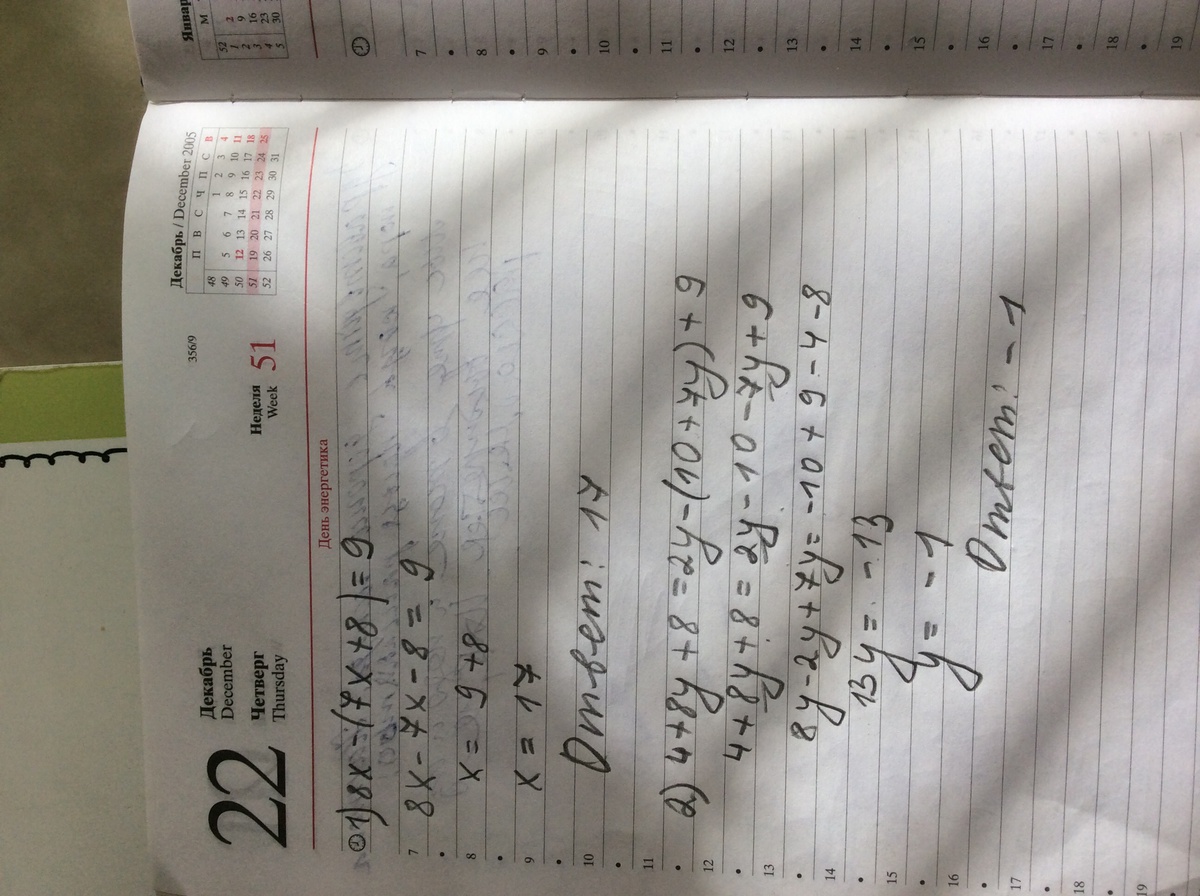 22
Декабрь
December
Четверг
Thursday
Неделя
Week 51
356/9
Декабрь / December 2005
П В С Ч П С В
48 1 2 3 4
49 5 6 7 8 9 10 11
50 12 13 14 15 16 17 18
51 19 20 21 22 23 24 25
52 26 27 28 29 30 31
День энергетика
1) 8x-(7x+8)=9
7 8x-7x-8=9
8 x=9+8
9 x=17
10 Ответ: 17
11
12 2) 4+8y+8=2y-(10+7y)+9
13 4+8y+8=2y-10-7y+9
14 8y-2y+7y=-10+9-4-8
15 13y=-13
16 y=-1
17 Ответ: -1
18
19
Январ
М
52 2
1 9
2 16
3 23
4 30
5
7
8
9
10
11
12
13
14
15
16
17
18
19